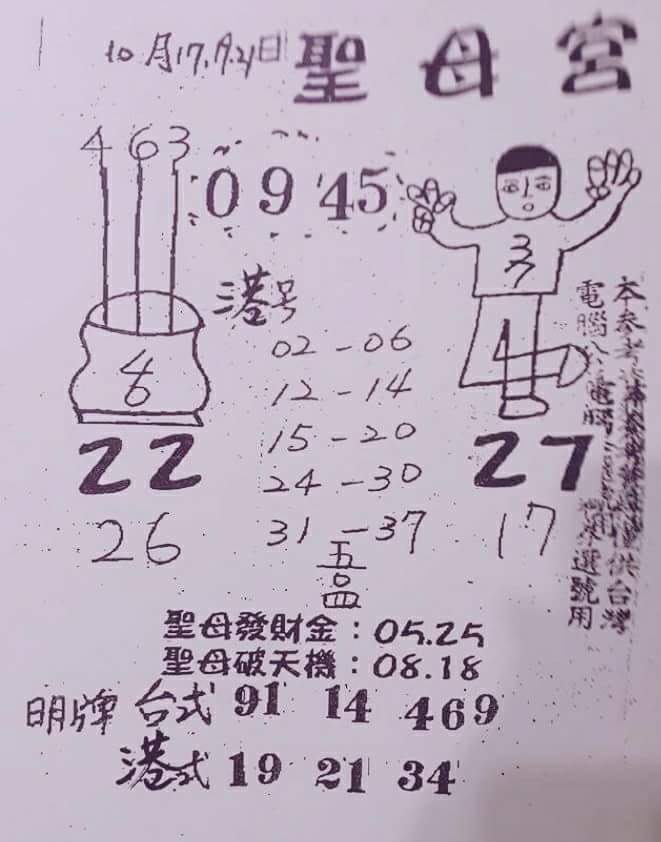 10月17.19.21日 聖母宮
4 6 3
09 45
3
7
港号
02-06
12-14
15-20
24-30
31-37
4
6
22
26
27
17
五
0
四
聖母發財金：05.25
聖母破天機：08.18
明牌 台式 91 14 469
港式 19 21 34
本參考
供台灣
電腦
選號用